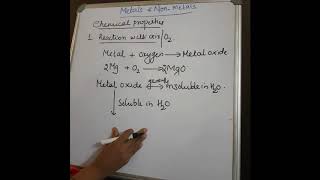 Metals & Non-Metals
Chemical properties
1. Reaction with air/O₂
Metal + oxygen → Metal oxide
2Mg + O₂ → 2MgO
Metal oxide generally insoluble in H₂O.
Soluble in H₂O